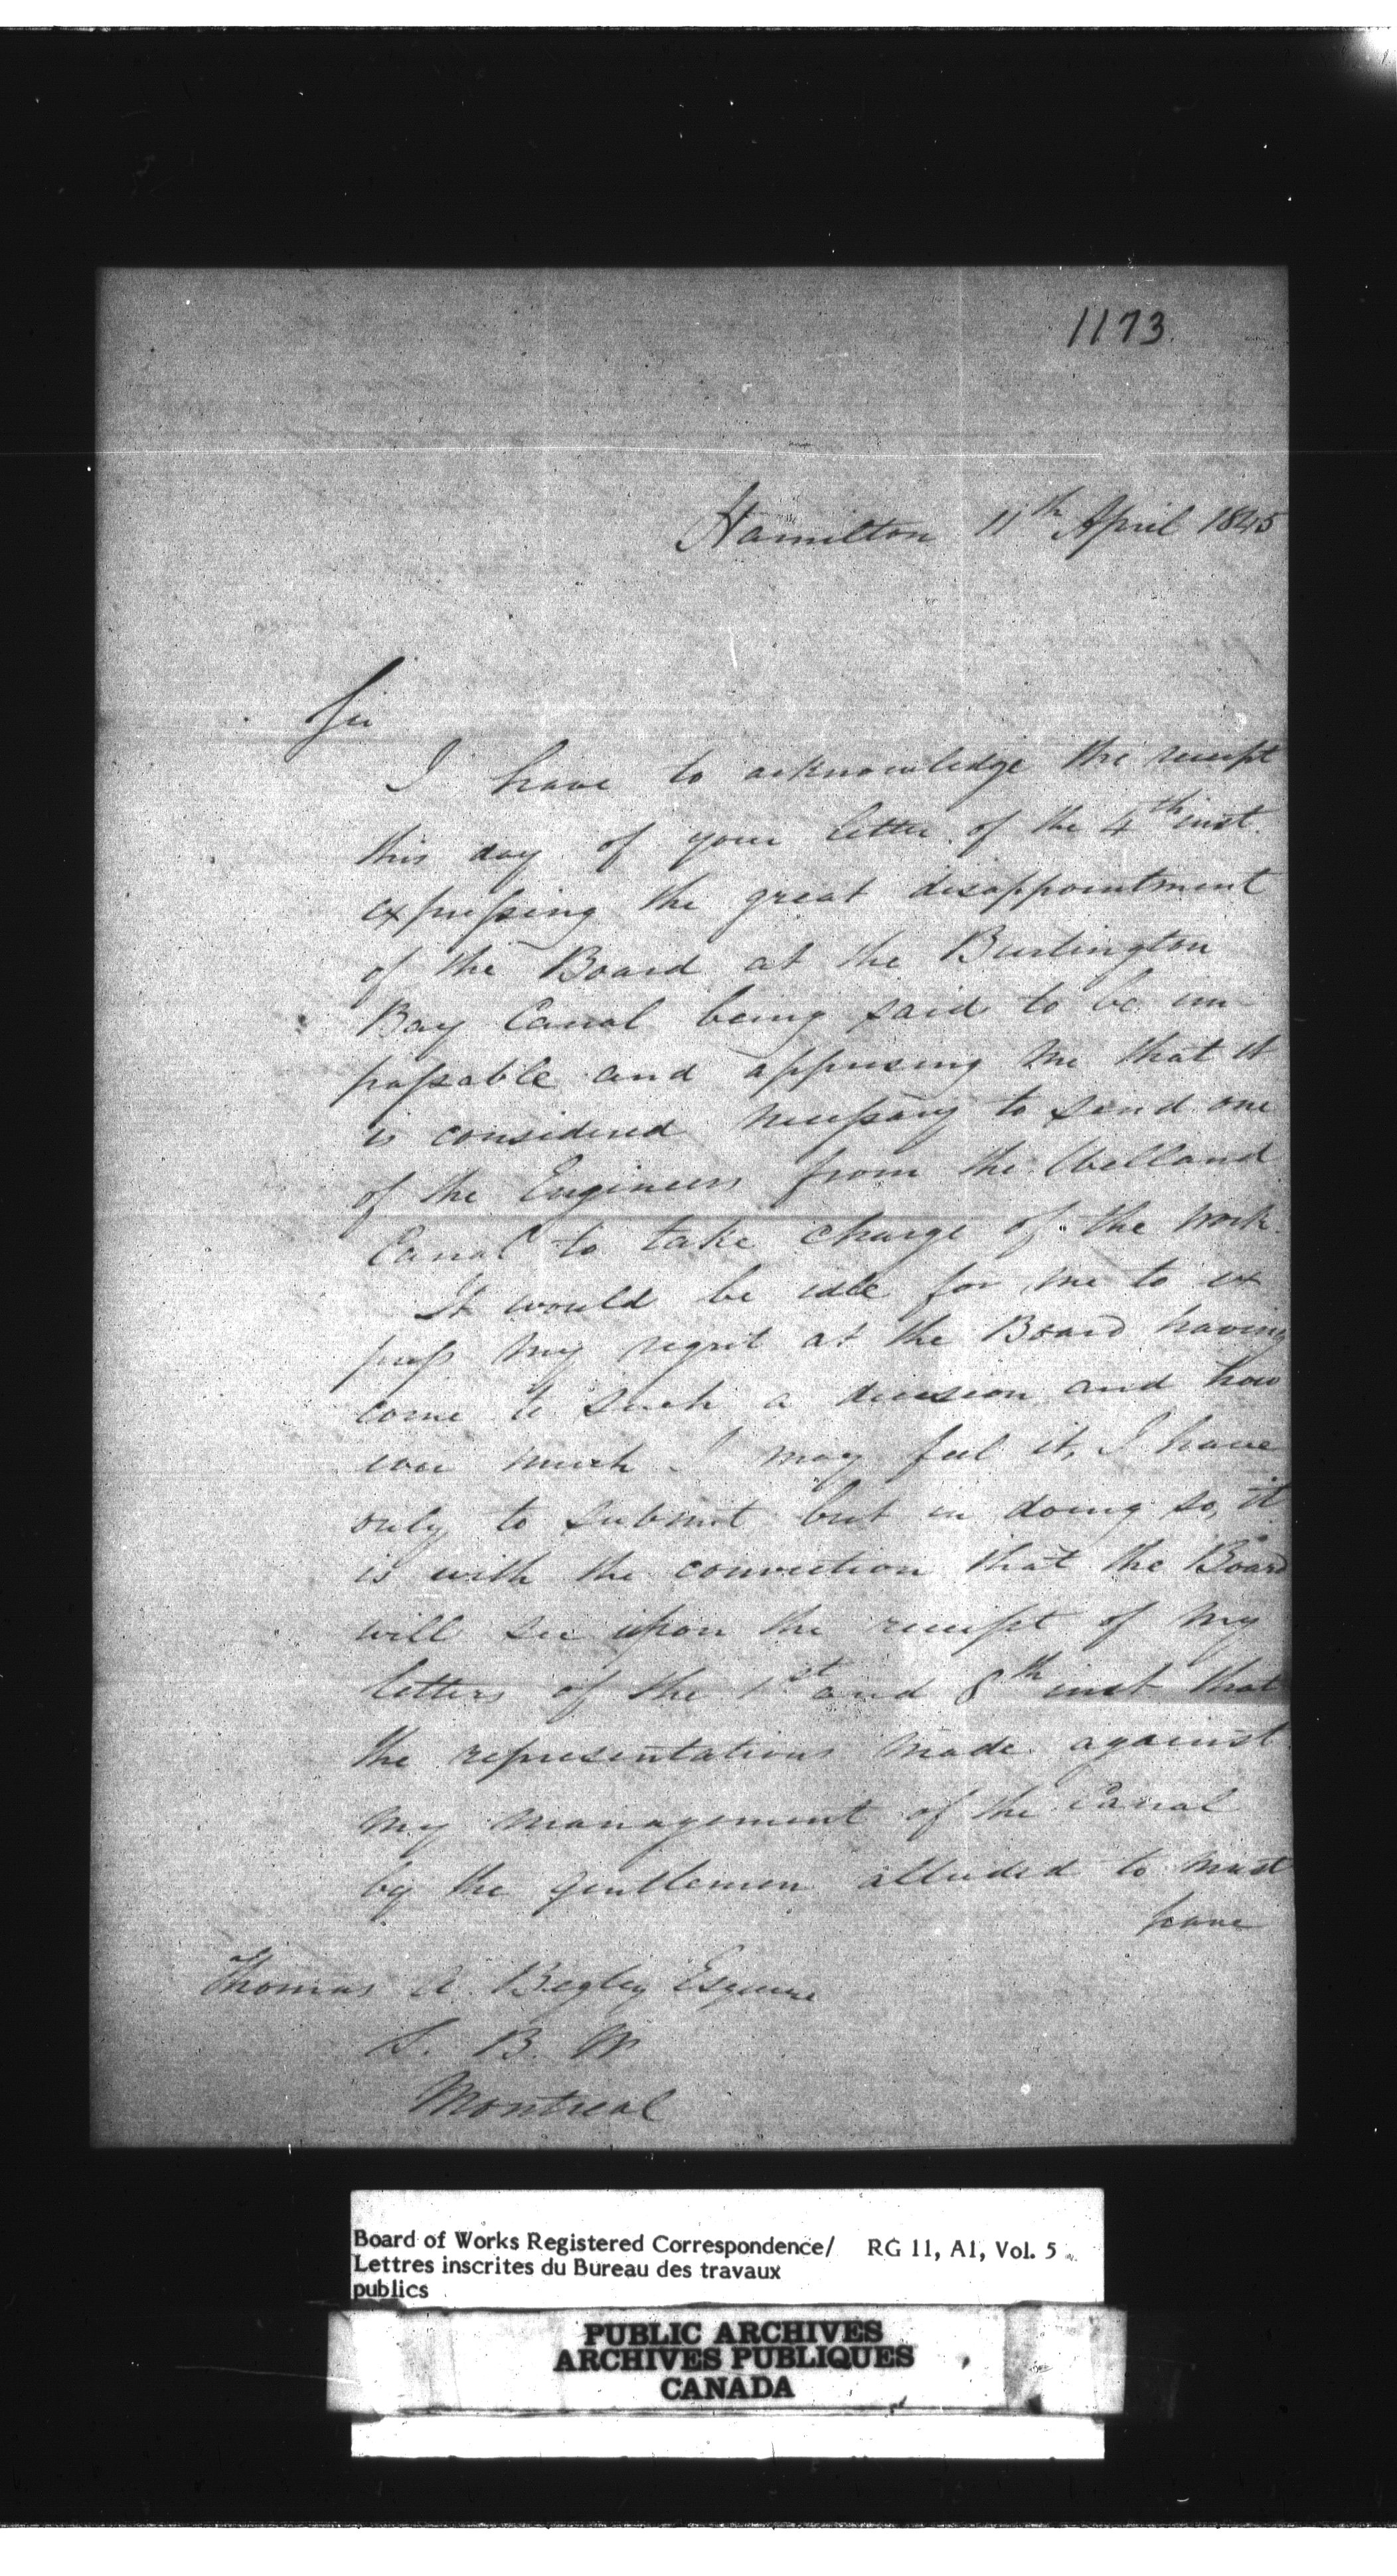 1173.
Hamilton 11th April 1845
Sir
I have to acknowledge the receipt
this day of your letter of the 4th inst.
expressing the great disappointment
of the Board at the Burlington
Bay Canal being said to be im
passable and apprising me that it
is considered necessary to send one
of the Engineers from the Welland
Canal to take charge of the work.
It would be idle for me to ex
press my regret at the Board having
come to such a decision and how
ever much I may feel it, I have
only to submit but in doing so, it
is with the conviction that the Board
will see upon the receipt of my
letters of the 1st and 8th inst that
the representations made against
my management of the Canal
by the gentlemen alluded to must
have
Thomas A. Begley Esquire
S. B. W
Montreal
Board of Works Registered Correspondence/ RG 11, A1, Vol. 5
Lettres inscrites du Bureau des travaux
publics
PUBLIC ARCHIVES
ARCHIVES PUBLIQUES
CANADA